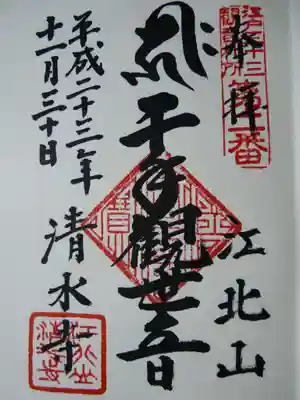 奉拝
第三番
江北山
千手観世音
清水寺
平成二十三年
十一月三十日